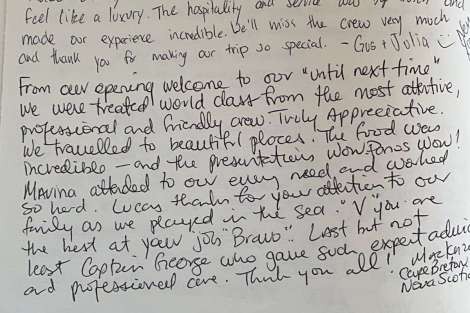 feel like a luxury. The hospitality and service was
made our experience incredible. We'll miss the crew very much
and thank you for making our trip so special. - Gus + Julia
From our opening welcome to our "until next time"
we were treated world class from the most attentive,
professional and friendly crew. Truly Appreciative.
We travelled to beautiful places. The food was
incredible - and the presentations Wow Wow!
Marina attended to our every need and worked
so hard. Lucas thanks for your attention to our
family as we played in the sea. "V" you are
the best at your job "Bravo". Last but not
least Captain George who gave such expert advice
and professional care. Thank you all!
Cape Breton
Nova Scotia